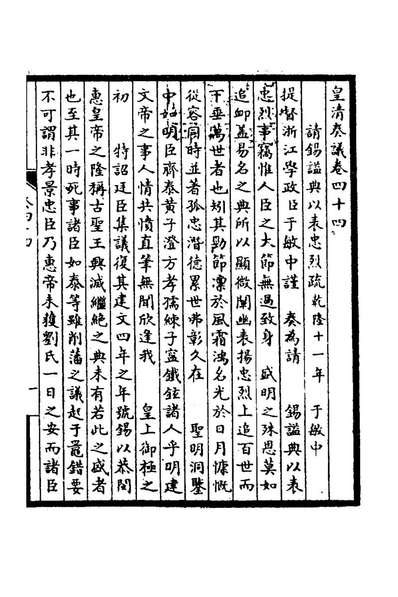 皇清奏議卷四十四
請錫謚典以表忠烈疏乾隆十一年 于敏中
提督浙江學政臣于敏中謹 奏為請 錫謚典以表
忠烈事竊惟人臣之大節無過致身 盛明之殊恩莫如
追卹葢易名之典所以顯微闡幽表揚忠烈上追百世而
下垂萬世者也矧其勁節凛於風霜鴻名光於日月慷慨
從容同時並著孤忠潛德累世弗彰久在 聖明洞鑒
中如明臣齊泰黃子澄方孝孺練子寧鐵鉉諸人乎明建
文帝之事人情共憤直筆無聞欣逢我 皇上御極之
初 特詔廷臣集議復其建文四年之年號錫以恭閔
惠皇帝之隆稱古聖王興滅繼絶之典未有若此之盛者
也至其一時死事諸臣如泰等雖削藩之議起于鼂錯要
不可謂非孝景忠臣乃惠帝未獲劉氏一日之安而諸臣
一